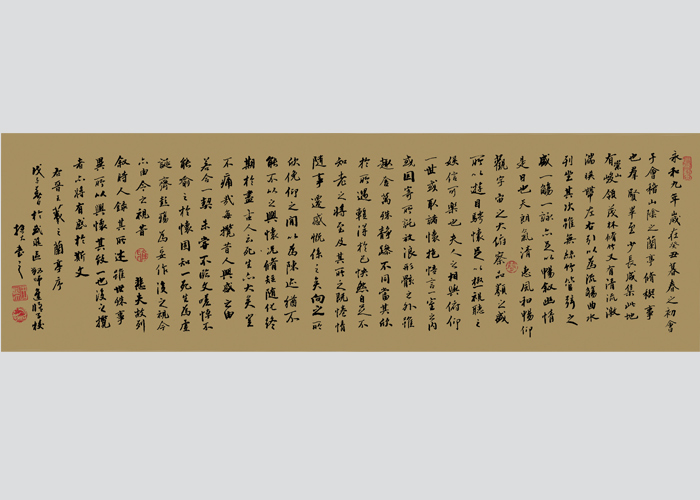 永和九年歲在癸丑暮春之初會
于會稽山陰之蘭亭脩禊事
也羣賢畢至少長咸集此地
有崇山峻領茂林脩竹又有清流激
湍暎帶左右引以為流觴曲水
列坐其次雖無絲竹管弦之
盛一觴一詠亦足以暢叙幽情
是日也天朗氣清惠風和暢仰
觀宇宙之大俯察品類之盛
所以遊目騁懷足以極視聽之
娛信可樂也夫人之相與俯仰
一世或取諸懷抱悟言一室之內
或因寄所託放浪形骸之外雖
趣舍萬殊靜躁不同當其欣
於所遇輒得於己怏然自足不
知老之將至及其所之既惓情
隨事遷感慨係之矣向之所
欣俛仰之間以為陳迹猶不
能不以之興懷況脩短隨化終
期於盡古人云死生亦大矣豈
不痛哉每攬昔人興感之由
若合一契未嘗不臨文嗟悼不
能喻之於懷固知一死生為虛
誕齊彭殤為妄作後之視今
亦由今之視昔 悲夫故列
叙時人錄其所述雖世殊事
異所以興懷其致一也後之攬
者亦將有感於斯文
右晉王羲之蘭亭序
戊子春日於
書之